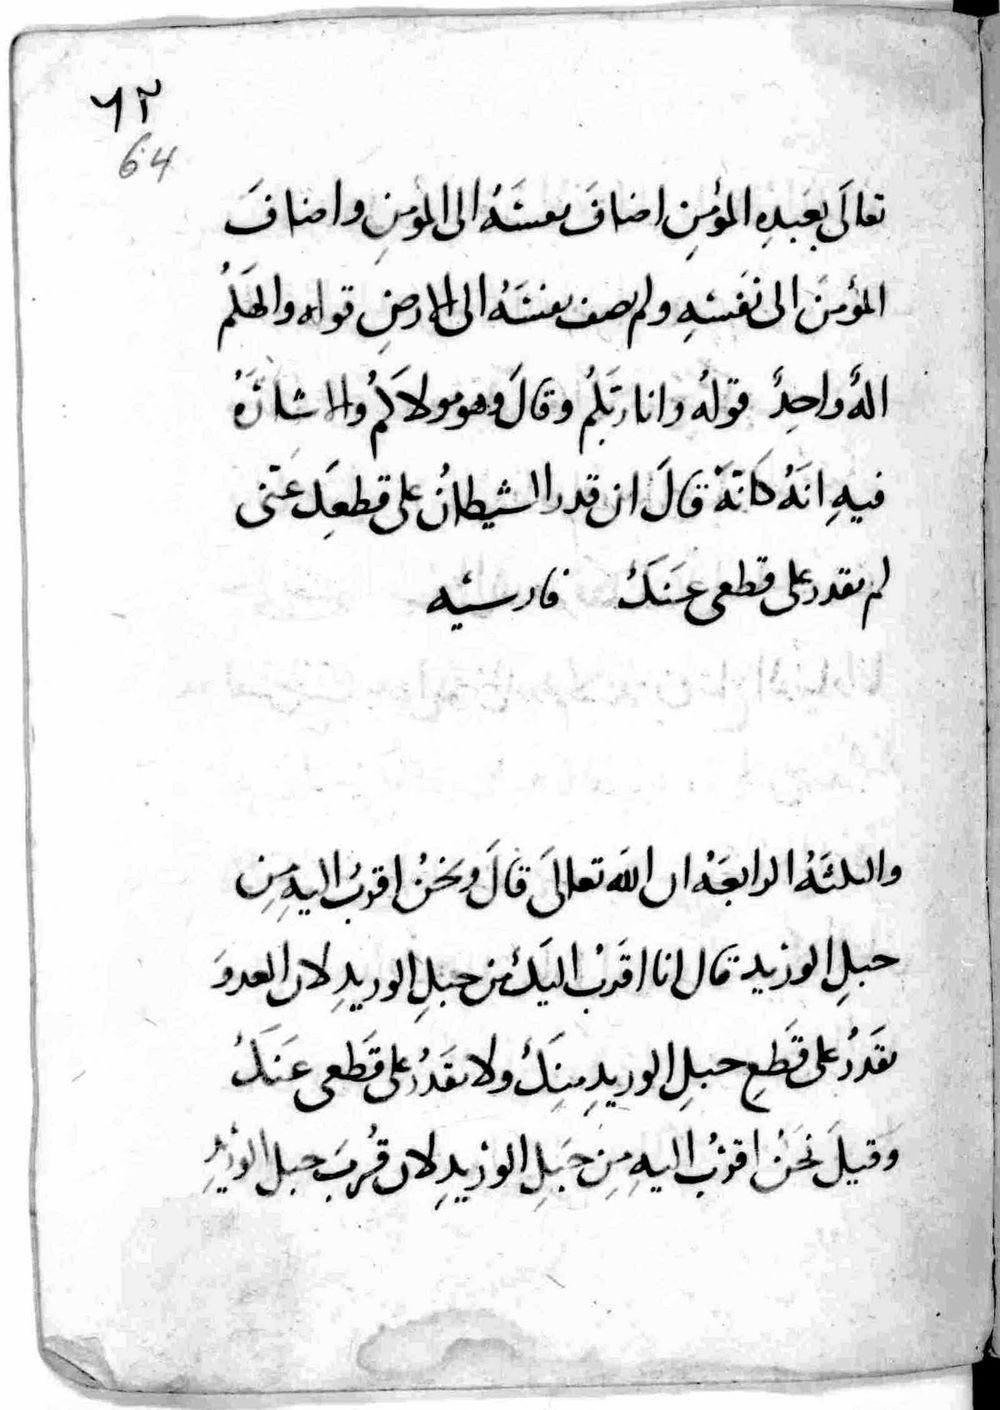 ٦٢
64
تعالَى بعَبدِه المؤمِنِ اضافَ نفسَهُ الى المؤمِنِ واضافَ
المؤمنَ الى نَفسِهِ ولم يضف نفسَهُ الى الارضِ قوله والهكُم
الهٌ واحِدٌ قولهُ وانا ربّكُم وقالَ وهو مولاكُم والاشارَةُ
فيهِ انَّهُ كانّهُ قالَ ان قدر الشيطانُ على قطعِكَ عنّى
لم يقدر على قطعى عَنكَ فارسيّه
والمسئلة الرابعَهُ ان اللهَ تعالىَ قالَ ونحنُ اقربُ اليهِ مِن
حبلِ الوريدِ قال انا اقرَبُ اليكَ من حبلِ الوريدِ لان العدوَ
يقَدرُ على قَطعِ حبلِ الوريدِ مِنكَ ولا يقَدرُ على قَطعى عَنكَ
وَقيلَ نَحنُ اقربُ اليهِ مِن حَبلِ الوريدِ لان قُربَ حبل الوريدِ